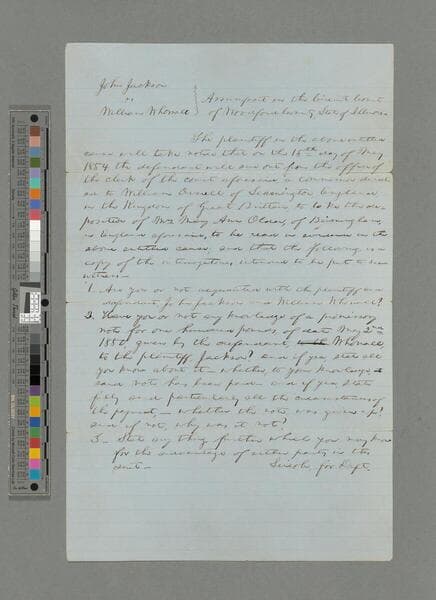 John Jackson
vs
William Whorrall
Assumpsit in the Circuit Court
of Woodford County State of Illinois
The plaintiff in the above entitled
cause will take notice that on the 15th day of May
1854 the defendant will sue out from the office of
the clerk of the court aforesaid, a commission direct
ed to William of Leamington England
in the Kingdom of Great Britain to take the de-
position of Mrs Mary Ann of Birmingham,
in England aforesaid, to be read in evidence in the
above entitled cause, and that the following is a
copy of the interrogatories, intended to be put to said
witness
1. Are you or not acquainted with the plaintiff and
defendant John Jackson and William Whorrall?
2. Have you or not any knowledge of a promissory
note for one hundred pounds, of date May 2nd
1850 given by the defendant Whorrall
to the plaintiff, Jackson? and if yea, state all
you know about it— whether, to your knowledge
said note has been paid— and if yea, state
fully and particularly all the circumstances of
the payment— whether the note was given up?
and if not, why was it not?
3— State any thing further which you may know
for the advantage of either party in this
suit—
Lincoln, for Deft.